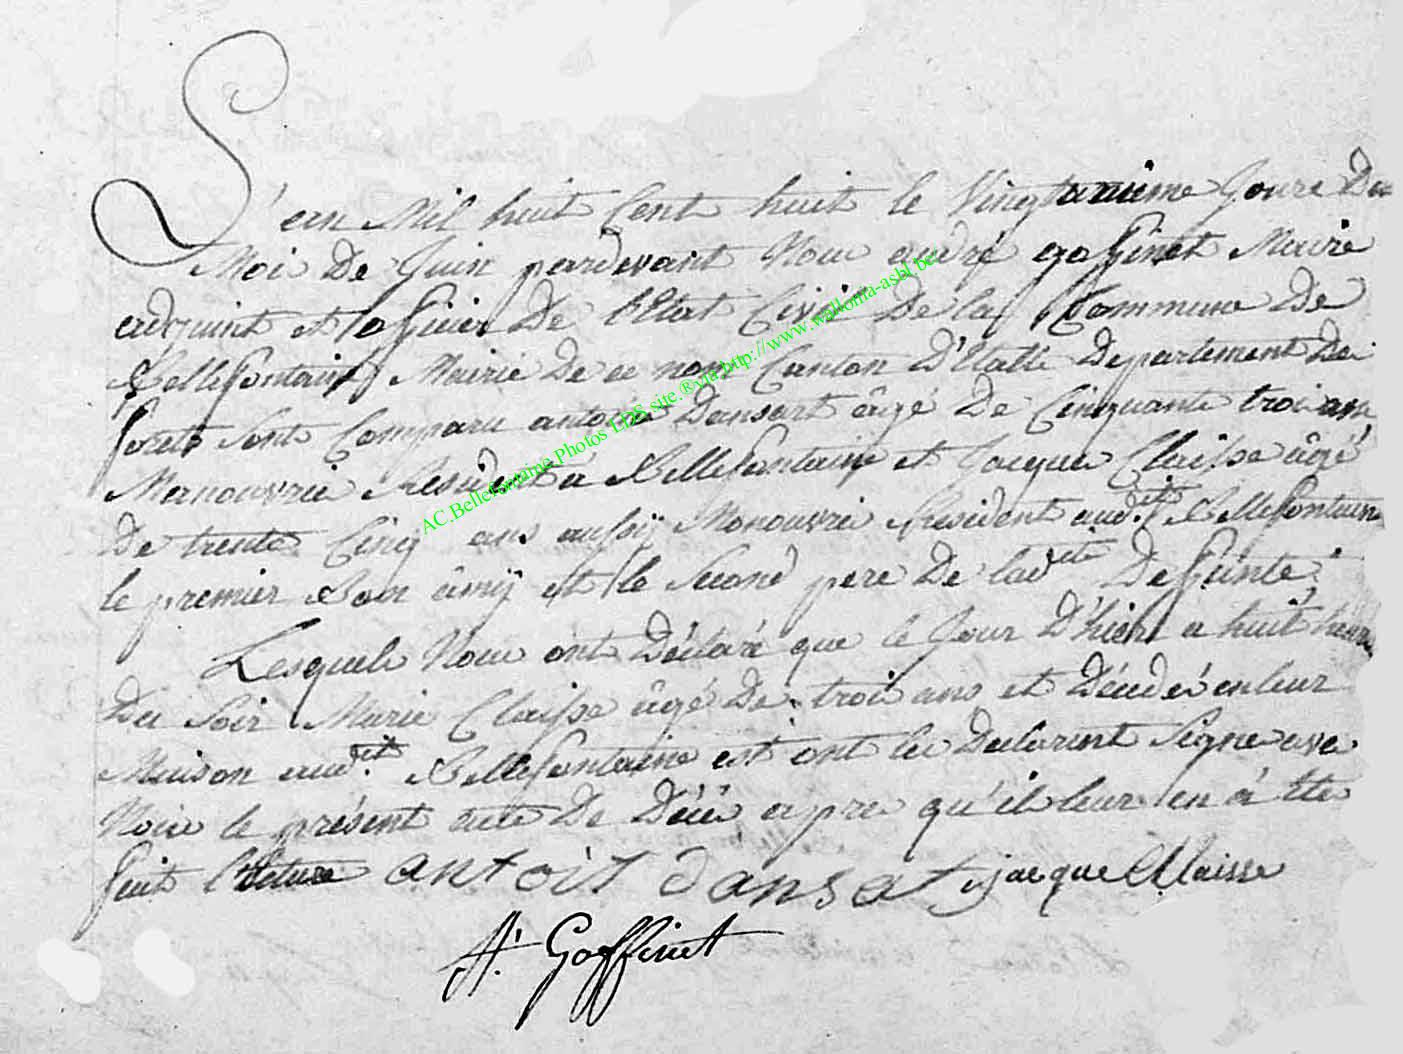 L'an Mil huit Cent huit le Vingtunieme Jour Du
Moi De Juin pardevant Nous andré goffinet Maire
adjoint et officier De l'Etat Civil De la Commune De
Bellefontaine Mairie De ce nom Canton D'Etalle Departement De
forets Sont Comparu antoine Dansart âgé De Cinquante troi ans
Manouvrie Resident a Bellefontaine et Jacque Claisse âgé
De trente Cinq ans aussy Manouvrie Resident audit Bellefontaine
le premier Son âmÿ et le Second pere De ladite Defunte
Lesquels Nous ont Déclaré que le Jour D'hier a huit heure
Du Soir Marie Claisse âgé De troi ans et Décédé en leur
Maison audit Bellefontaine est ont les Declarant Signe avec
Nous le présent acte De Décè apres qu'il leur en à Ete
fait lecture antois dansat jacque Claisse
A. Goffinet
AC.Bellefontaine Photos LDS site.®via http://www.wallonia-asbl.be